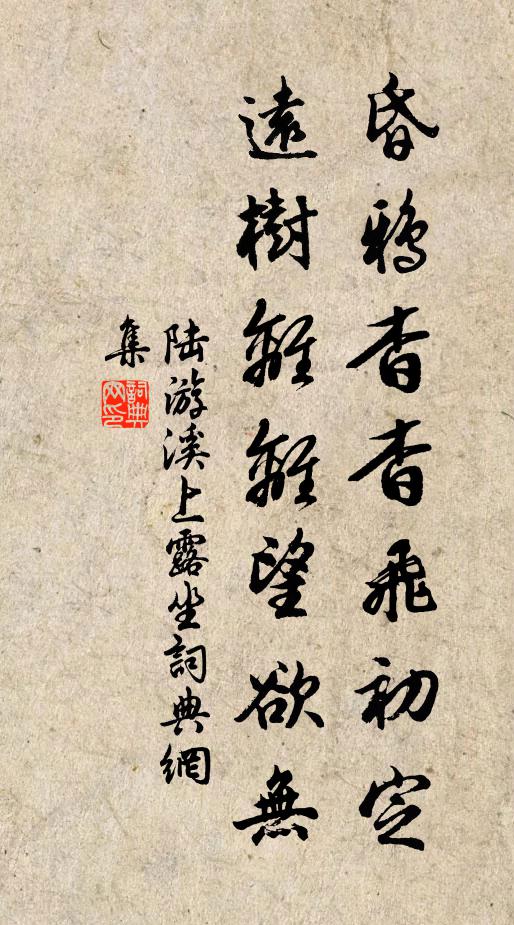 昏鴉杳杳飛初定
遠樹離離望欲無
陸游溪上露坐詞典網
集
詞典
网印